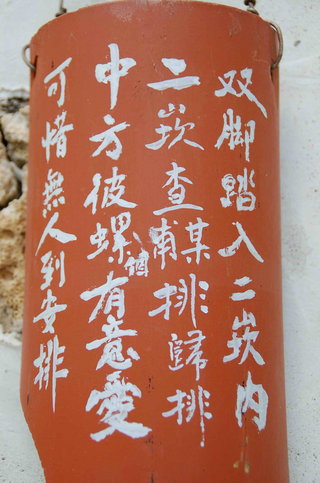 双脚踏入二崁內
二崁查甫某排歸排
中方彼螺個有意愛
可惜無人到安排